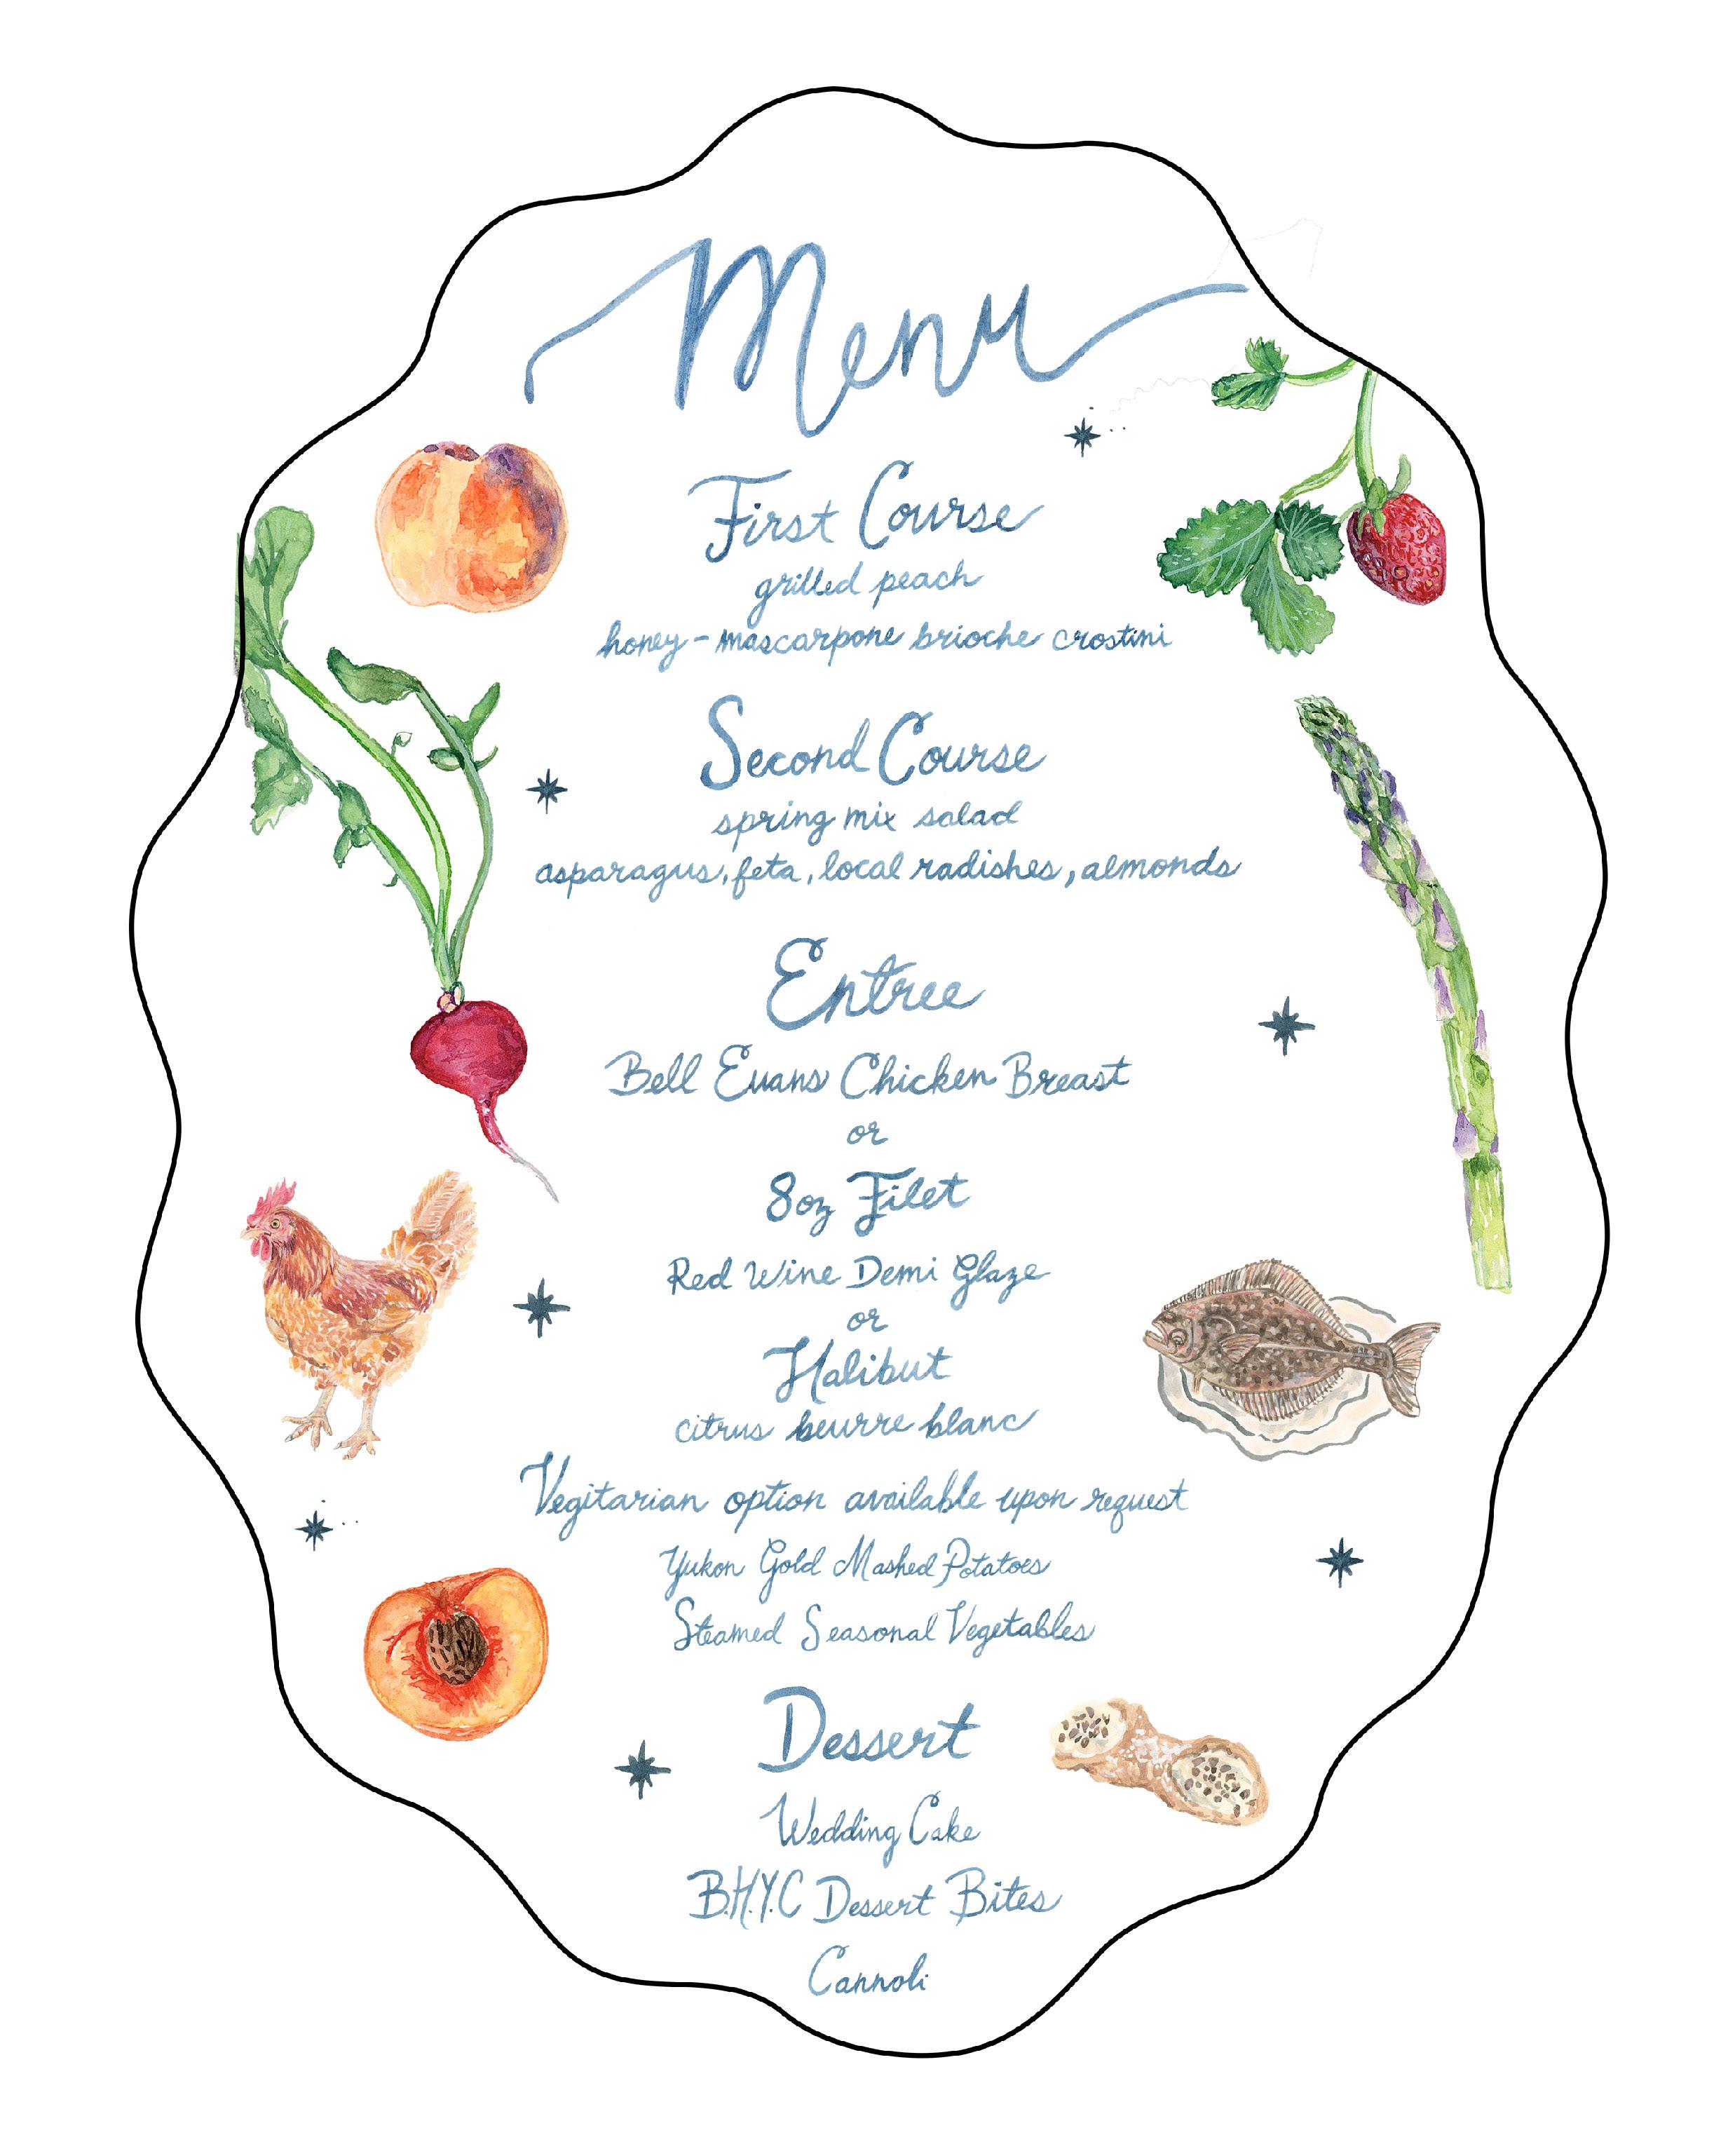 Menu
First Course
grilled peach
honey-mascarpone brioche crostini
Second Course
spring mix salad
asparagus, feta, local radishes, almonds
Entree
Bell Evans Chicken Breast
or
8oz Filet
Red Wine Demi Glaze
or
Halibut
citrus beurre blanc
Vegitarian option available upon request
Yukon Gold Mashed Potatoes
Steamed Seasonal Vegetables
Dessert
Wedding Cake
B.H.Y.C Dessert Bites
Cannoli